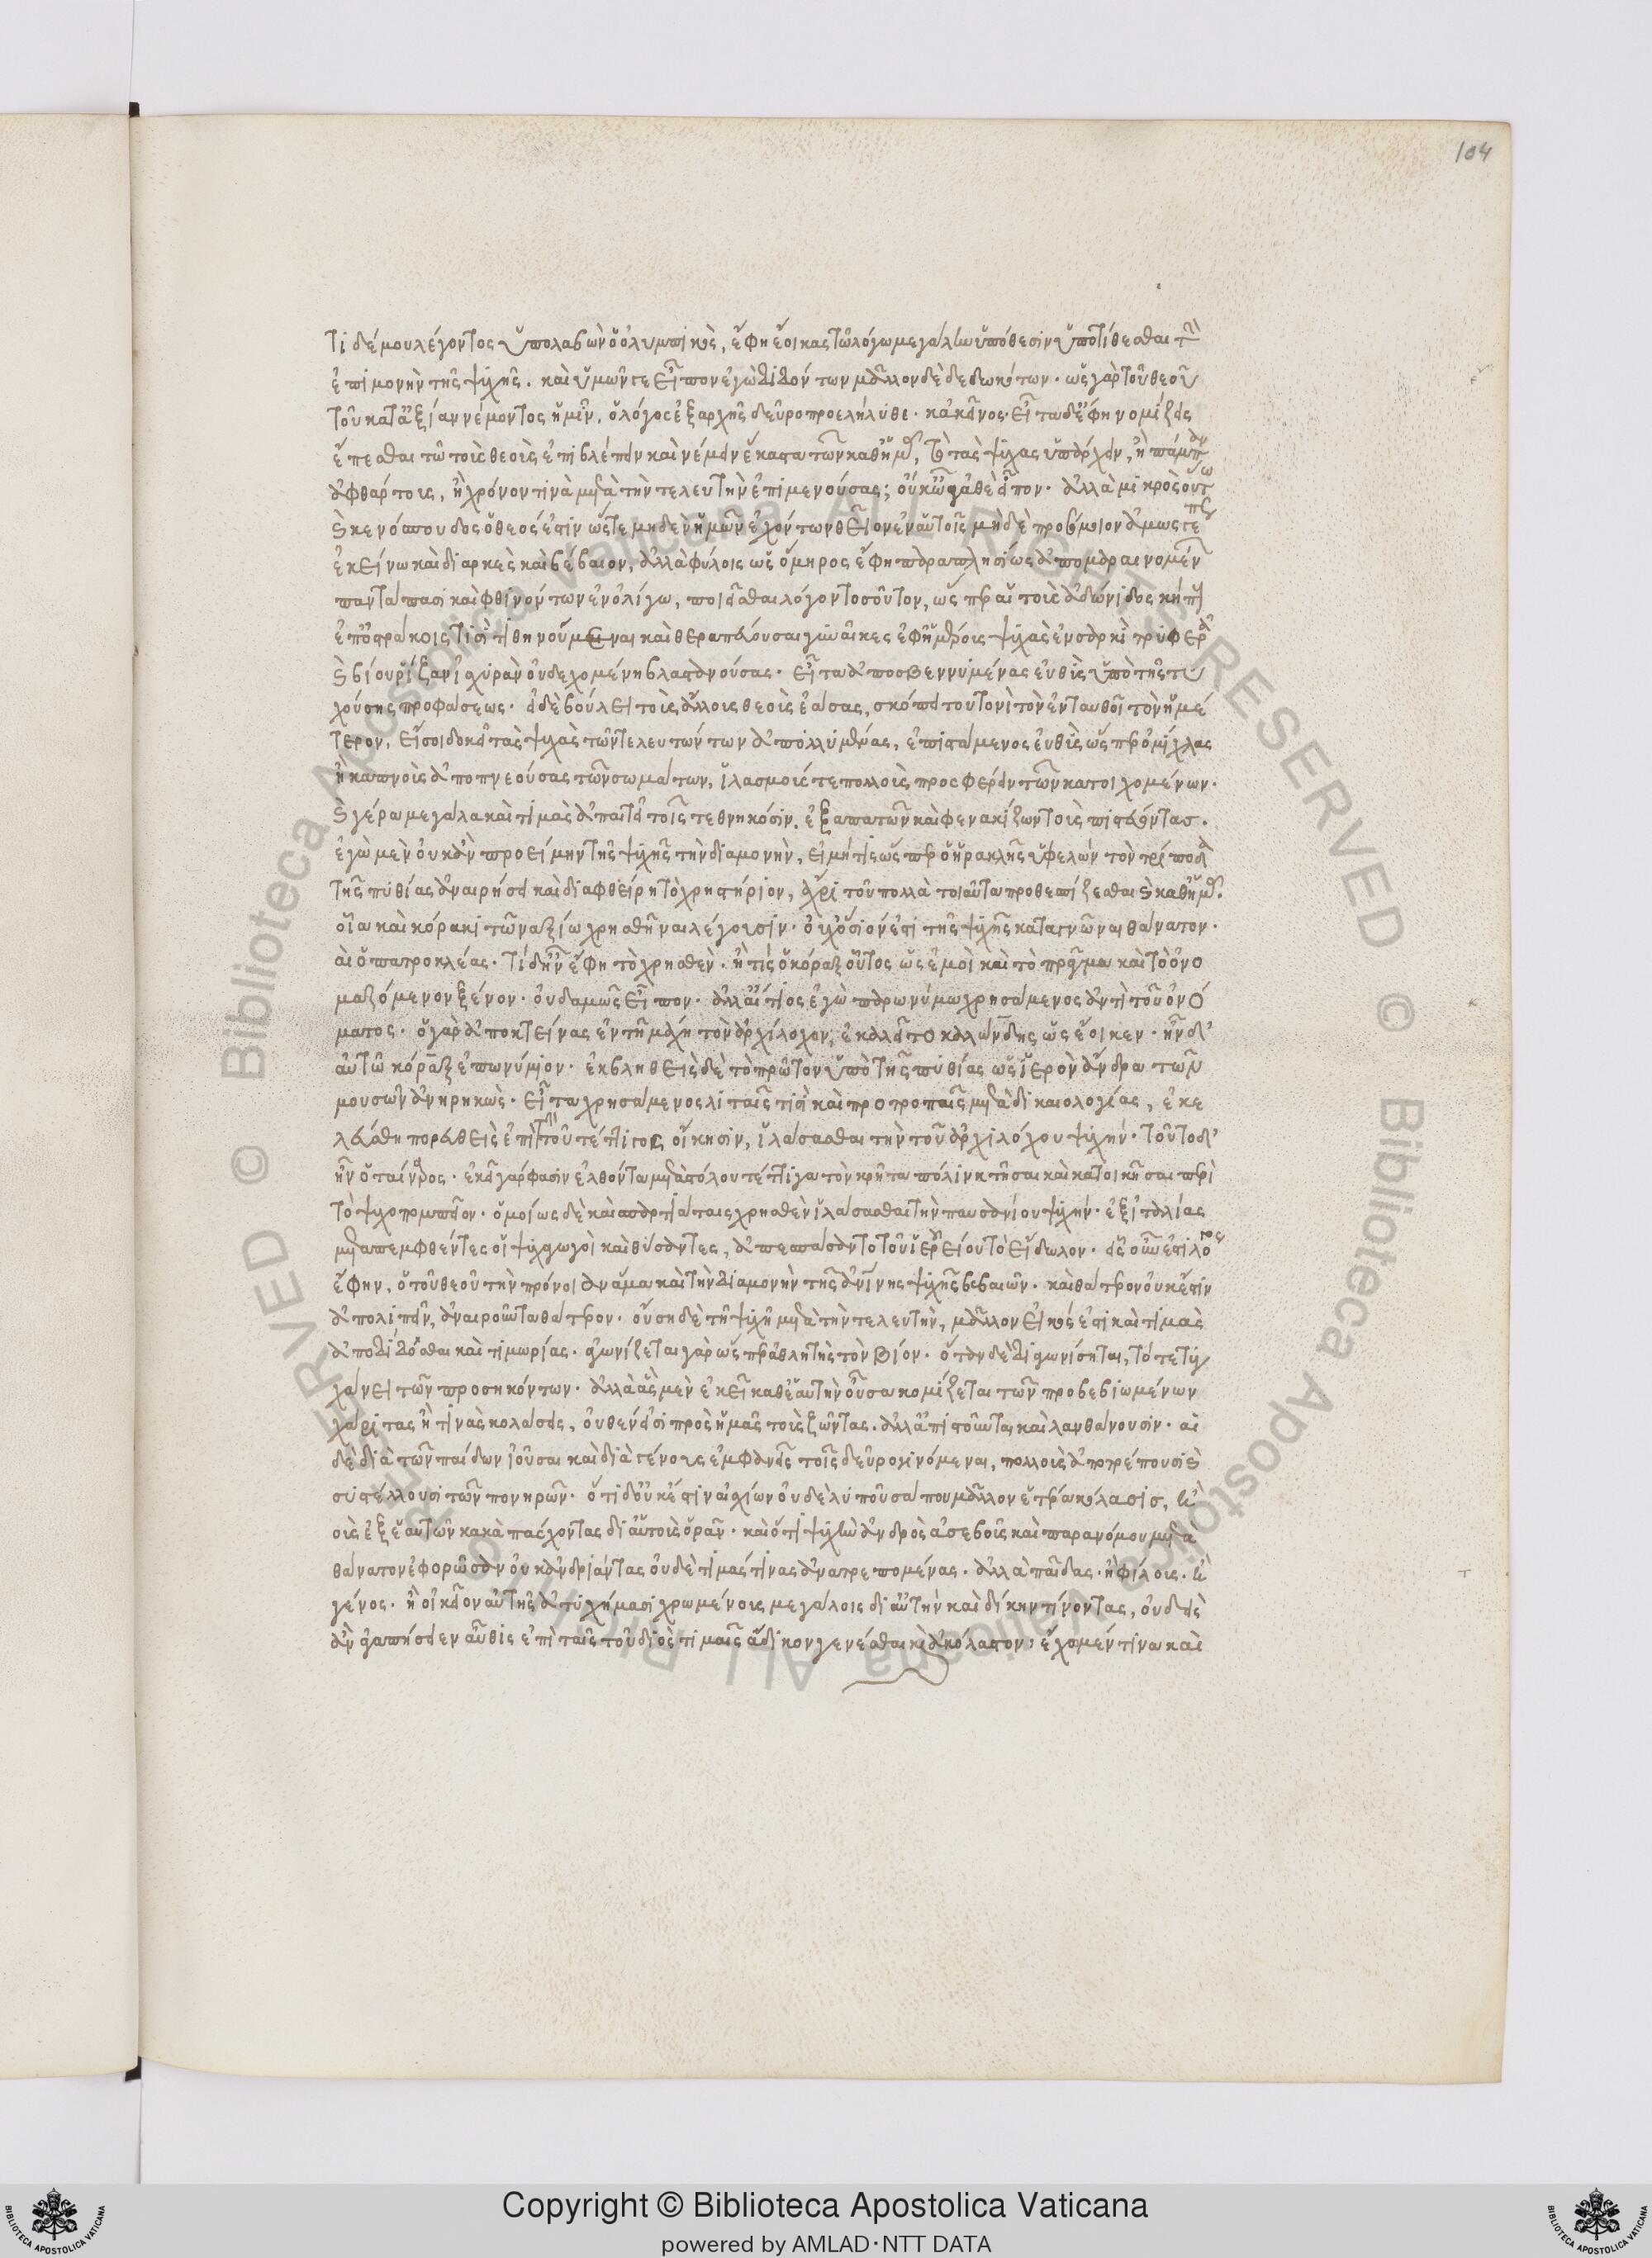 104
Τί δέ μου λέγοντος ὑπολαβὼν ὁ ὀλυμπικὸς, ἔφη ἔοικας τῷ λόγῳ μεγάλην ὑπόθεσιν ὑποτίθεσθαι τὴν
ἐπιμονὴν τῆς ψυχῆς. καὶ ὑμῶν γε εἶπον ἐγὼ διδόντων μᾶλλον δὲ δεδωκότων. ὡς γὰρ τοῦ θεοῦ
τοῦ κατ' ἀξίαν νέμοντος ἡμῖν, ὁ λόγος ἐξ ἀρχῆς δεῦρο προελήλυθε. κἀκεῖνος· εἶτα δ' ἔφη νομίζεις
ἕπεσθαι τῷ τοὺς θεοὺς ἐπιβλέπειν καὶ νέμειν ἕκαστα τῶν καθ' ἡμᾶς, τὸ τὰς ψυχὰς ὑπάρχειν, ἢ πάμπαν
ἀφθάρτους, ἢ χρόνον τινὰ μετὰ τὴν τελευτὴν ἐπιμενούσας; οὐκ ὦγαθὲ εἶπον. ἀλλὰ μικρὸς οὕτω
καὶ κενόσπουδος ὁ θεός ἐστιν ὥστε μηδὲν ἡμῶν ἐχόντων θεῖον ἐν αὑτοῖς μηδὲ προσόμοιον ἁμωσγέπως
ἐκείνῳ καὶ διαρκὲς καὶ βέβαιον, ἀλλὰ φύλοις ὡς ὅμηρος ἔφη παραπλησίως ἀπομαραινομένων
παντάπασι καὶ φθινόντων ἐν ὀλίγῳ, ποιεῖσθαι λόγον τοσοῦτον, ὥσπερ αἱ τοὺς ἀδώνιδος κήπους
ἐπ' ὀστράκοις τισὶ τιθηνούμεναι καὶ θεραπεύουσαι γυναῖκες ἐφημέρους ψυχὰς ἐν σαρκὶ τρυφερᾷ
καὶ βίου ῥίζαν ἰσχυρὰν οὐ δεχομένῃ βλαστανούσας. εἶτα ἀποσβεννυμένας εὐθὺς ὑπὸ τῆς τυ
χούσης προφάσεως. εἰ δὲ βούλει τοὺς ἄλλους θεοὺς ἐάσας, σκόπει τουτονὶ τὸν ἐνταυθοῖ τὸν ἡμέ
τερον, εἴ σοι δοκεῖ τὰς ψυχὰς τῶν τελευτώντων ἀπολλυμένας, ἐπιστάμενος εὐθὺς ὥσπερ ὀμίχλας
ἢ καπνοὺς ἀποπνεούσας τῶν σωμάτων, ἱλασμούς τε πολλοὺς προσφέρειν τῶν κατοιχομένων.
καὶ γέρα μεγάλα καὶ τιμὰς ἀπαιτεῖ τοῖς τεθνηκόσιν, ἐξαπατῶν καὶ φενακίζων τοὺς πιστεύοντας.
ἐγὼ μὲν οὐκ ἂν προείμην τῆς ψυχῆς τὴν διαμονὴν, εἰ μή τις ὥσπερ ὁ ἡρακλῆς ὑφελὼν τὸν τρίποδα
τῆς πυθίας ἀναιρήσει καὶ διαφθείρῃ τὸ χρηστήριον, ἄχρι τοῦ πολλὰ τοιαῦτα προθεσπίζεσθαι καὶ καθ' ἡμᾶς.
οἷα καὶ κόρακι τῷ ναξίῳ χρησθῆναι λέγουσιν. οὐχ ὅσιόν ἐστι τῆς ψυχῆς καταγνῶναι θάνατον.
καὶ ὁ πατροκλέας. τί δ' ἦν ἔφη τὸ χρησθὲν. ἢ τίς ὁ κόραξ οὗτος ὡς ἐμοὶ καὶ τὸ πρᾶγμα καὶ τὸ ὀνο
μαζόμενον ξένον. οὐδαμῶς εἶπον. ἀλλ' αἴτιος ἐγὼ παρωνύμῳ χρησάμενος ἀντὶ τοῦ ὀνό
ματος. ὁ γὰρ ἀποκτείνας ἐν τῇ μάχῃ τὸν ἀρχίλοχον, ἐκαλεῖτο καλλώνδης ὡς ἔοικεν. ἦν δ'
αὐτῷ κόραξ ἐπωνύμιον. ἐκβληθεὶς δὲ τὸ πρῶτον ὑπὸ τῆς πυθίας ὡς ἱερὸν ἄνδρα τῶν
μουσῶν ἀνῃρηκὼς. εἶτα χρησάμενος λιταῖς τισὶ καὶ προτροπαῖς μετὰ δικαιολογίας, ἐκε
λεύσθη πορευθεὶς ἐπὶ τὴν τοῦ τέττιγος οἴκησιν, ἱλάσασθαι τὴν τοῦ ἀρχιλόχου ψυχήν. τοῦτο δ'
ἦν ὁ ταίναρος. ἐκεῖ γάρ φασιν ἐλθόντα μετὰ στόλου τέττιγα τὸν κρῆτα πόλιν κτῆσαι καὶ κατοικῆσαι περὶ
τὸ ψυχοπομπεῖον. ὁμοίως δὲ καὶ σπαρτιάταις χρησθὲν ἱλάσασθαι τὴν παυσανίου ψυχήν. ἐξ ἰταλίας
μεταπεμφθέντες οἱ ψυχαγωγοὶ καὶ θύσαντες, ἀπεσπάσαντο τοῦ ἱερείου τὸ εἴδωλον. εἷς οὖν ἐστι λόγος
ἔφην, ὁ τοῦ θεοῦ τὴν πρόνοιαν ἅμα καὶ τὴν διαμονὴν τῆς ἀνθρωπίνης ψυχῆς βεβαιῶν. καὶ θάτερον οὐκ ἔστιν
ἀπολιπεῖν, ἀναιροῦντα θάτερον. οὔσῃ δὲ τῇ ψυχῇ μετὰ τὴν τελευτὴν, μᾶλλον εἰκός ἐστι καὶ τιμὰς
ἀποδίδοσθαι καὶ τιμωρίας. ἀγωνίζεται γὰρ ὥσπερ ἀθλητὴς τὸν βίον. ὅταν δὲ διαγωνίσηται, τότε τυγ
χάνει τῶν προσηκόντων. ἀλλὰ ἃς μὲν ἐκεῖ καθ' ἑαυτὴν οὖσα κομίζεται τῶν προβεβιωμένων
χάριτας ἤ τινας κολάσεις, οὐθέν εἰσι πρὸς ἡμᾶς τοὺς ζῶντας. ἀλλ' ἀπιστοῦνται καὶ λανθάνουσιν. αἱ
δὲ διὰ τῶν παίδων ἰοῦσαι καὶ διὰ γένους ἐμφανεῖς τοῖς δεῦρο γινόμεναι, πολλοὺς ἀποτρέπουσι καὶ
συστέλλουσι τῶν πονηρῶν. ὅτι δ' οὐκ ἔστιν αἰσχίων οὐδὲ λυποῦσά που μᾶλλον ἑτέρα κόλασις, ἢ
οὺς ἐξ ἑαυτῶν κακὰ πάσχοντας δι' αὑτοὺς ὁρᾶν. καὶ ὅτι ψυχὴν ἀνδρὸς ἀσεβοῦς καὶ παρανόμου μετὰ
θάνατον ἐφορῶσαν οὐκ ἀνδριάντας οὐδὲ τιμάς τινας ἀνατρεπομένας. ἀλλὰ παῖδας. ἢ φίλους. ἢ
γένος. ἢ οἰκεῖον αὐτῆς ἀτυχήμασι χρωμένους μεγάλοις δι' αὐτὴν καὶ δίκην τίνοντας, οὐδεὶς
ἂν ἀγαπήσειεν αὖθις ἐπὶ ταῖς τοῦ διὸς τιμαῖς ἄδικον γενέσθαι καὶ ἀκόλαστον· ἔχομέν τινα καὶ
Copyright © Biblioteca Apostolica Vaticana
powered by AMLAD·NTT DATA
BIBLIOTECA APOSTOLICA VATICANA
© Biblioteca Apostolica Vaticana ALL RIGHTS RESERVED